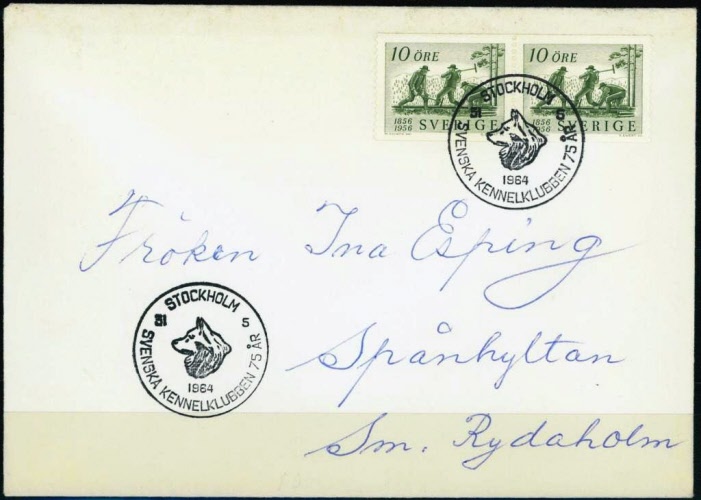 10 ÖRE
1856
1956 SVERIGE
10 ÖRE
1856
1956 SVERIGE
STOCKHOLM
31 5
1964
SVENSKA KENNELKLUBBEN 75 ÅR
Fröken Ina Esping
Spånhyltan
Sm. Rydaholm
STOCKHOLM
31 5
1964
SVENSKA KENNELKLUBBEN 75 ÅR